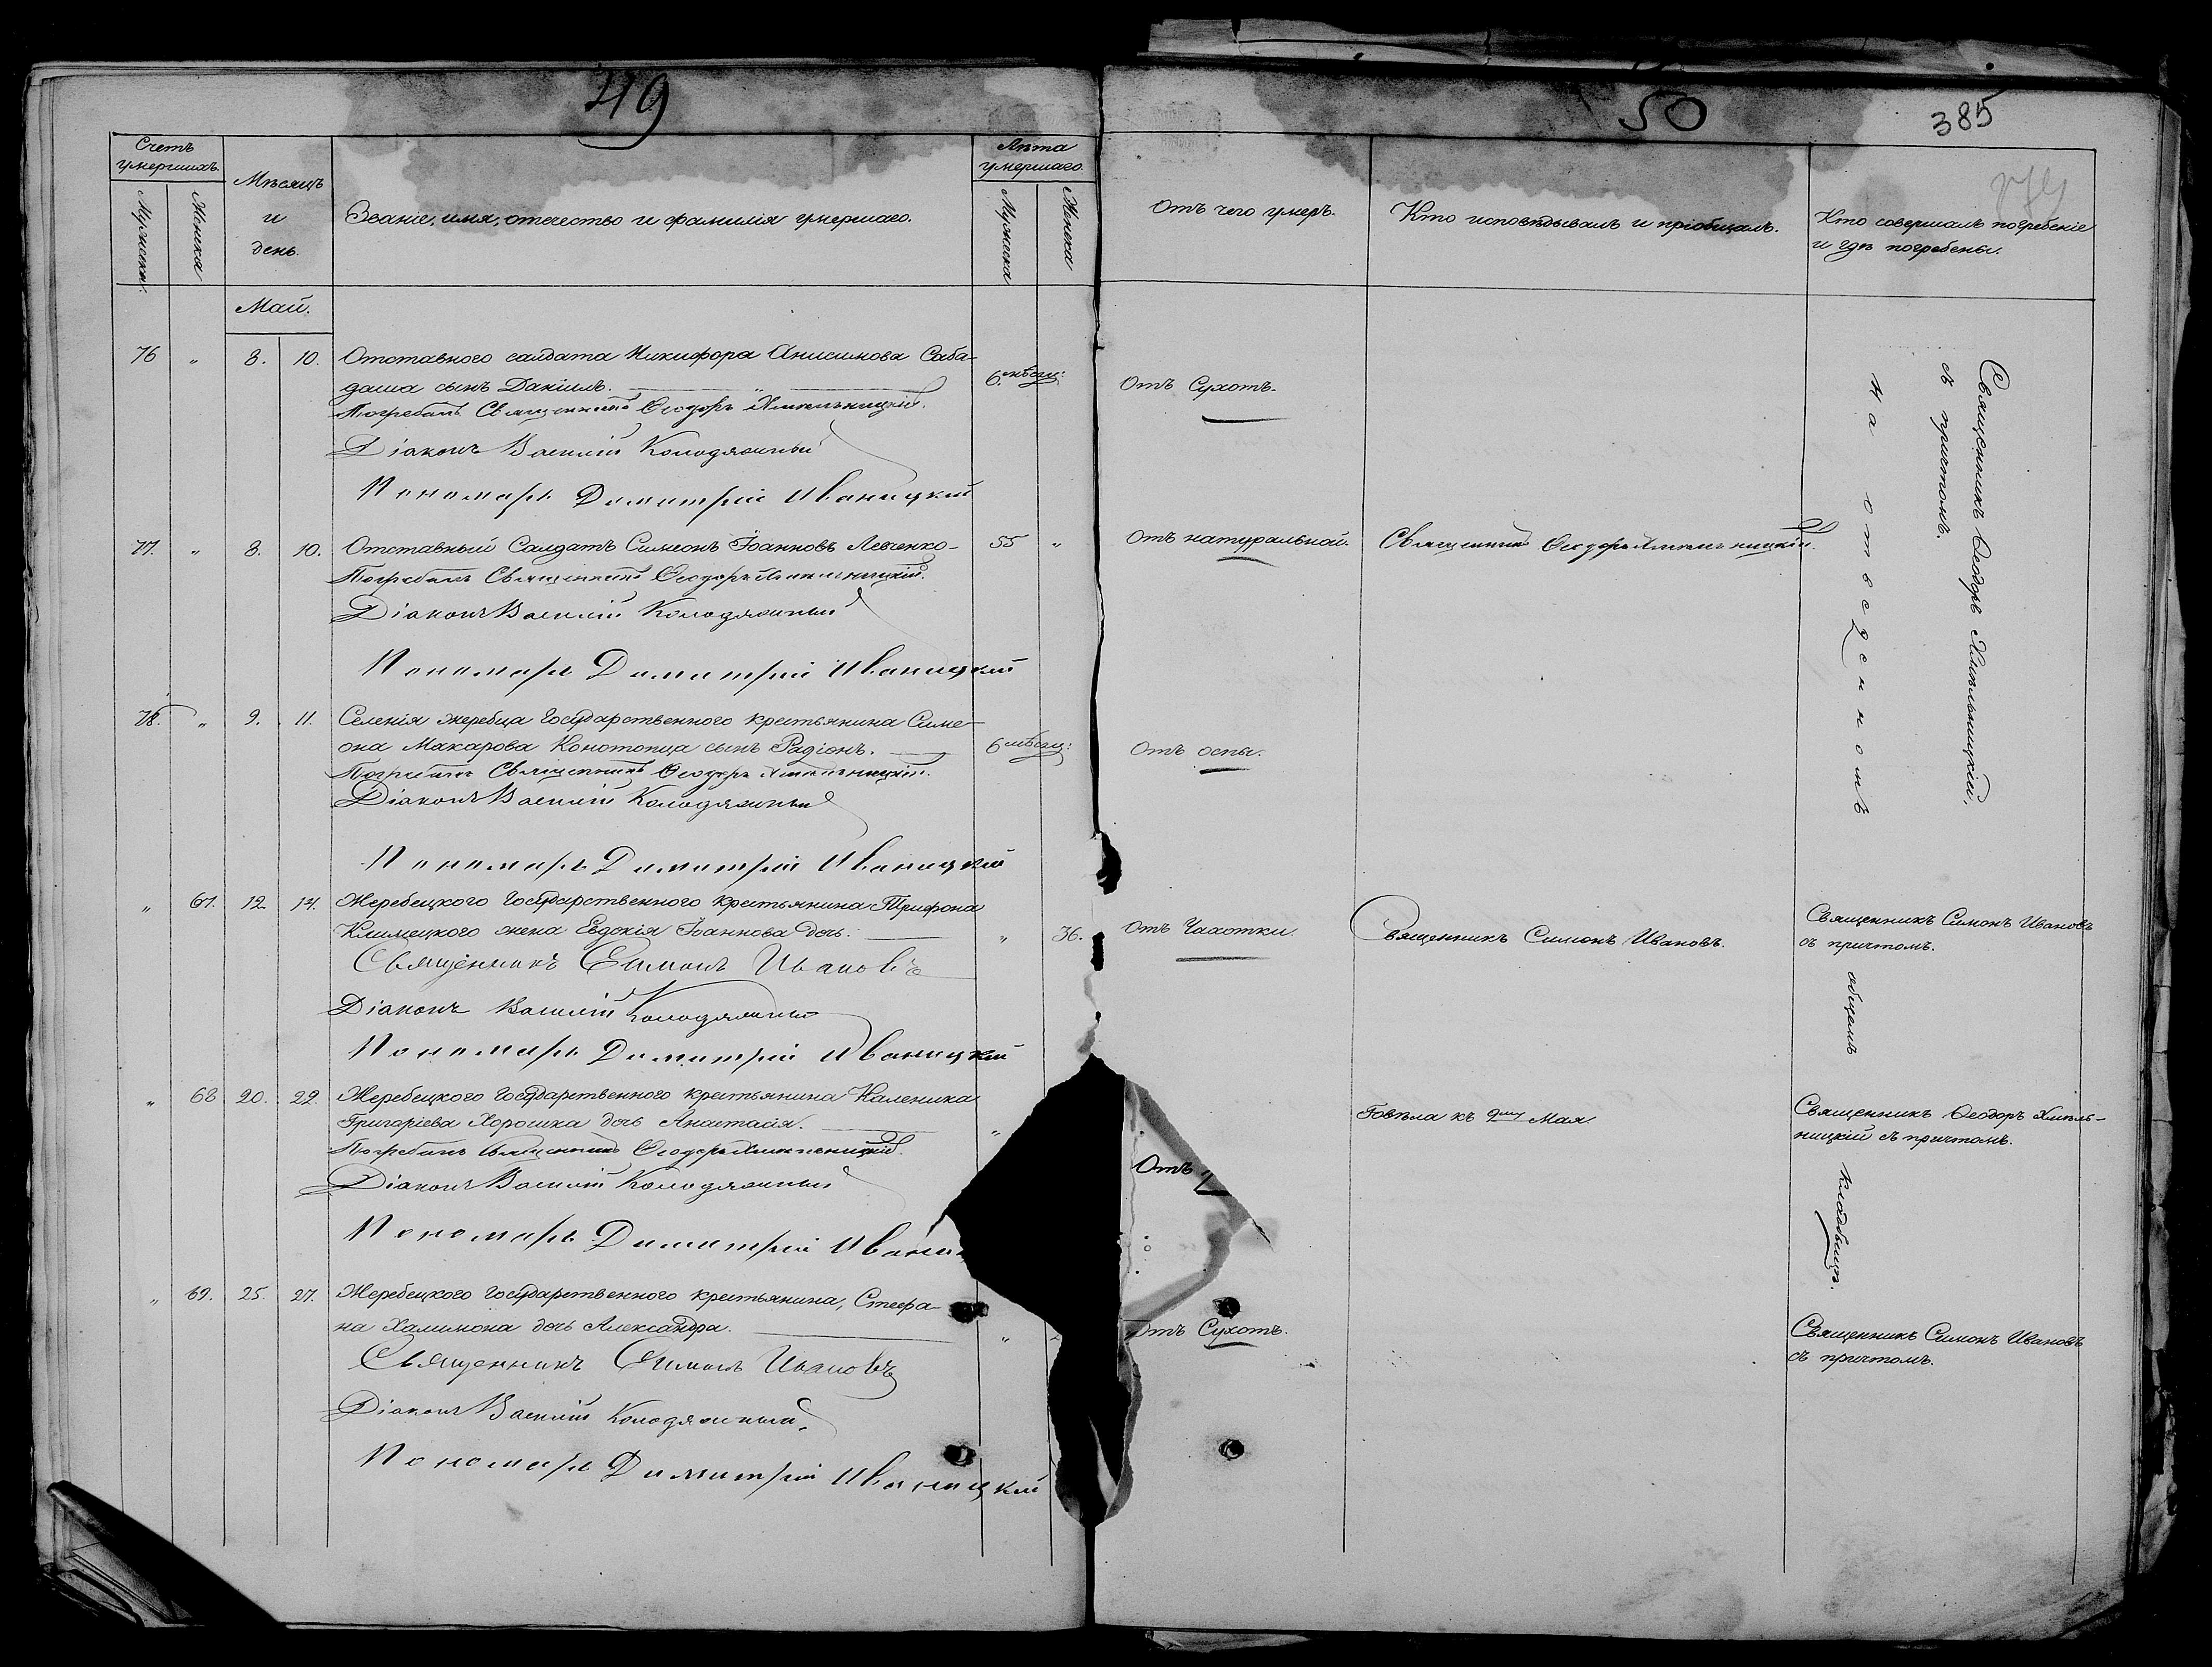 49
Счетъ умершихъ.
Мужеска.
Женска
Мѣсяцъ и день.
Званіе, имя, отчество и фамилія умершаго.
Лѣта умершаго.
Мужеска
Женска
Май.
76 „ 8. 10. Отставного салдата Никифора Анисимова Саба-
даша сынъ Даніилъ. „ 6. мѣсяц:
Погребалъ Священникъ Ѳеодоръ Хмѣльницкій.
Діаконъ Василій Колодяжный
Пономарь Димитрій Иваницкій
77. „ 8. 10. Отставный Салдатъ Симеонъ Іоанновъ Левченко- 55 „
Погребалъ Священникъ Ѳеодоръ Хмѣльницкій.
Діаконъ Василій Колодяжный
Пономарь Димитрій Иваницкій
78. „ 9. 11. Селенія жеребца Государственного крестьянина Симе-
она Макарова Конотопца сынъ Радіонъ. 6 мѣсяц:
Погребалъ Священникъ Ѳеодоръ Хмѣльницкій.
Діаконъ Василій Колодяжный
Пономарь Димитрій Иваницкій
„ 67. 12 14. Жеребецкого Государственного крестьянина Трифона
Климецкого жена Евдокія Іоаннова дочь. „ 36.
Священникъ Симонъ Ивановъ
Діаконъ Василій Колодяжный
Пономарь Димитрій Иваницкій
„ 68 20. 22. Жеребецкого Государственного крестьянина Каленика
Григоріева Хорошка дочь Анастасія. „
Погребалъ Священникъ Ѳеодоръ Хмѣльницкій.
Діаконъ Василій Колодяжный
Пономарь Димитрій
„ 69. 25. 27. Жеребецкого Государственного крестьянина, Стефа-
на Халимона дочь Александра. „
Священникъ Симонъ Ивановъ
Діаконъ Василій Колодяжный.
Пономарь Димитрій Иваницкій
50
385
Отъ чего умеръ.
Кто исповѣдывалъ и пріобщалъ.
Кто совершалъ погребеніе
и гдѣ погребены.
Отъ Сухотъ.
Отъ натуральной.
Священникъ Ѳеодоръ Хмѣльницкій.
Отъ оспы.
Священникъ Ѳеодоръ Хмѣльницкій,
съ причтомъ.
на отведенномъ
Отъ Чахотки.
Священникъ Симонъ Ивановъ.
Священникъ Симонъ Ивановъ
съ причтомъ.
общемъ
Отъ
Говѣла къ 9му Мая.
Священникъ Ѳеодоръ Хмѣль-
ницкій съ причтомъ.
кладбищѣ.
Отъ Сухотъ.
Священникъ Симонъ Ивановъ
съ причтомъ.